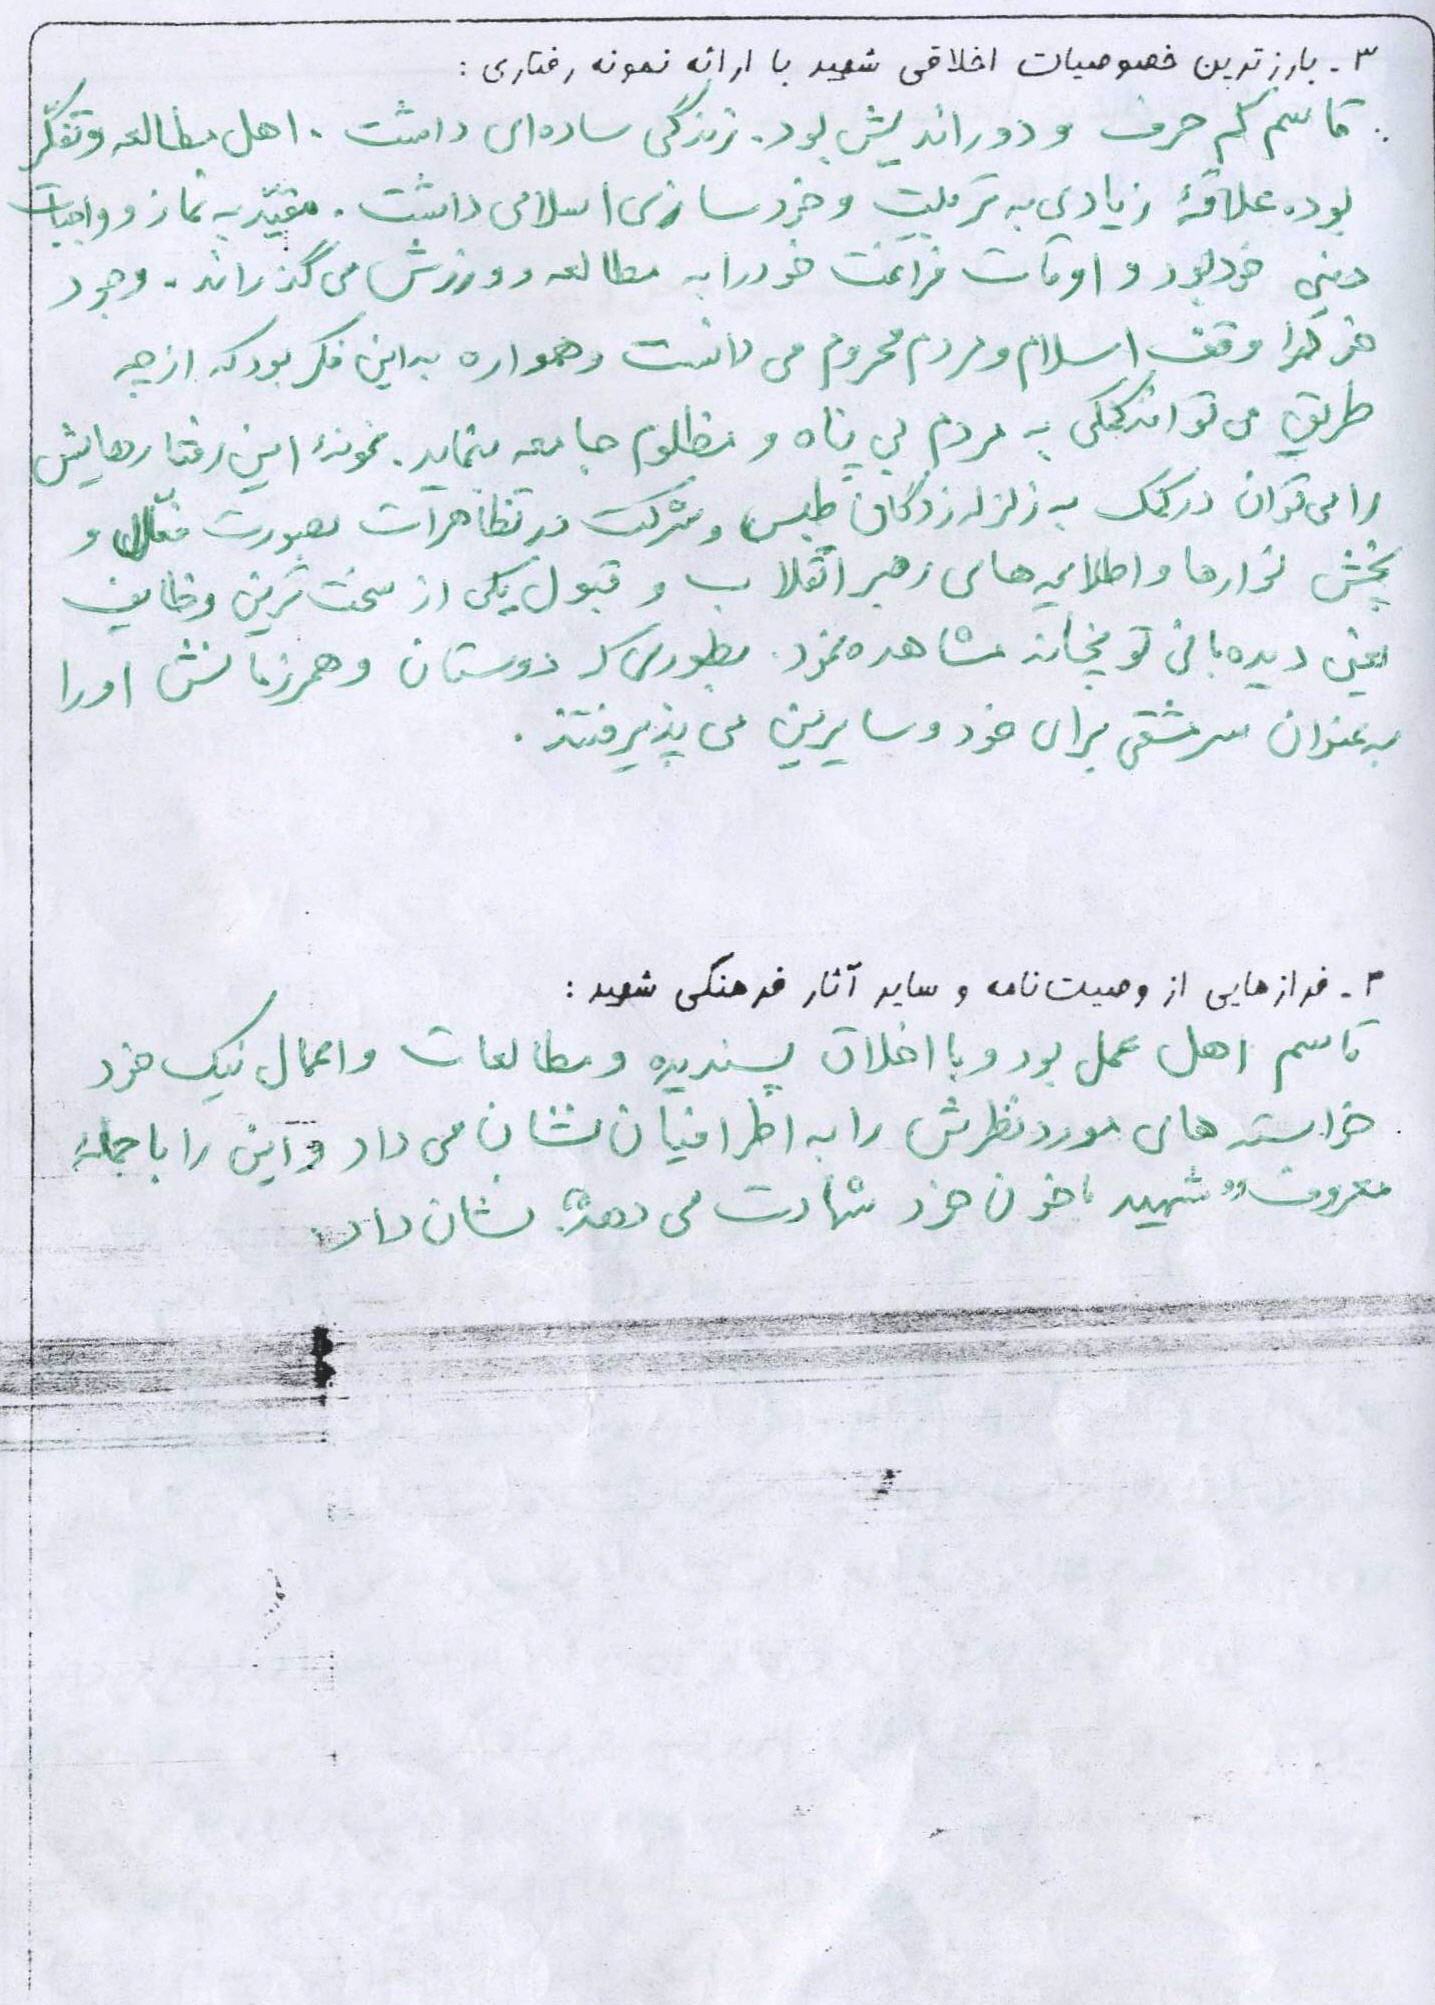 ۳ـ بارزترین خصوصیات اخلاقی شهید با ارائه نمونه رفتاری :
قاسم کم حرف و دوراندیش بود. زندگی ساده‌ای داشت . اهل مطالعه و تفکّر
بود. علاقهٔ زیادی به تربیت و خودسازی اسلامی داشت . مقیّد به نماز و واجبات
دینی خود بود و اوقات فراغت خود را به مطالعه و ورزش می گذراند . وجود
خود را وقف اسلام و مردم محروم می دانست و همواره به این فکر بود که از چه
طریق می تواند کمکی به مردم بی پناه و مظلوم جامعه بنماید. نمونهٔ این رفتارهایش
را می توان در کمک به زلزله زدگان طبس و شرکت در تظاهرات بصورت فعّال و
پخش نوارها و اطلاعیه های رهبر انقلاب و قبول یکی از سخت ترین وظایف
یعنی دیده بانی توپخانه مشاهده نمود. بطوری که دوستان و همرزمانش او را
به عنوان سرمشقی برای خود و سایرین می پذیرفتند .
۴ـ فرازهایی از وصیت‌نامه و سایر آثار فرهنگی شهید :
قاسم اهل عمل بود و با اخلاق پسندیده و مطالعات و اعمال نیک خود
خواسته های مورد نظرش را به اطرافیان نشان می داد و این را با جملهٔ
معروف "شهید با خون خود شهادت می دهد" نشان داد.